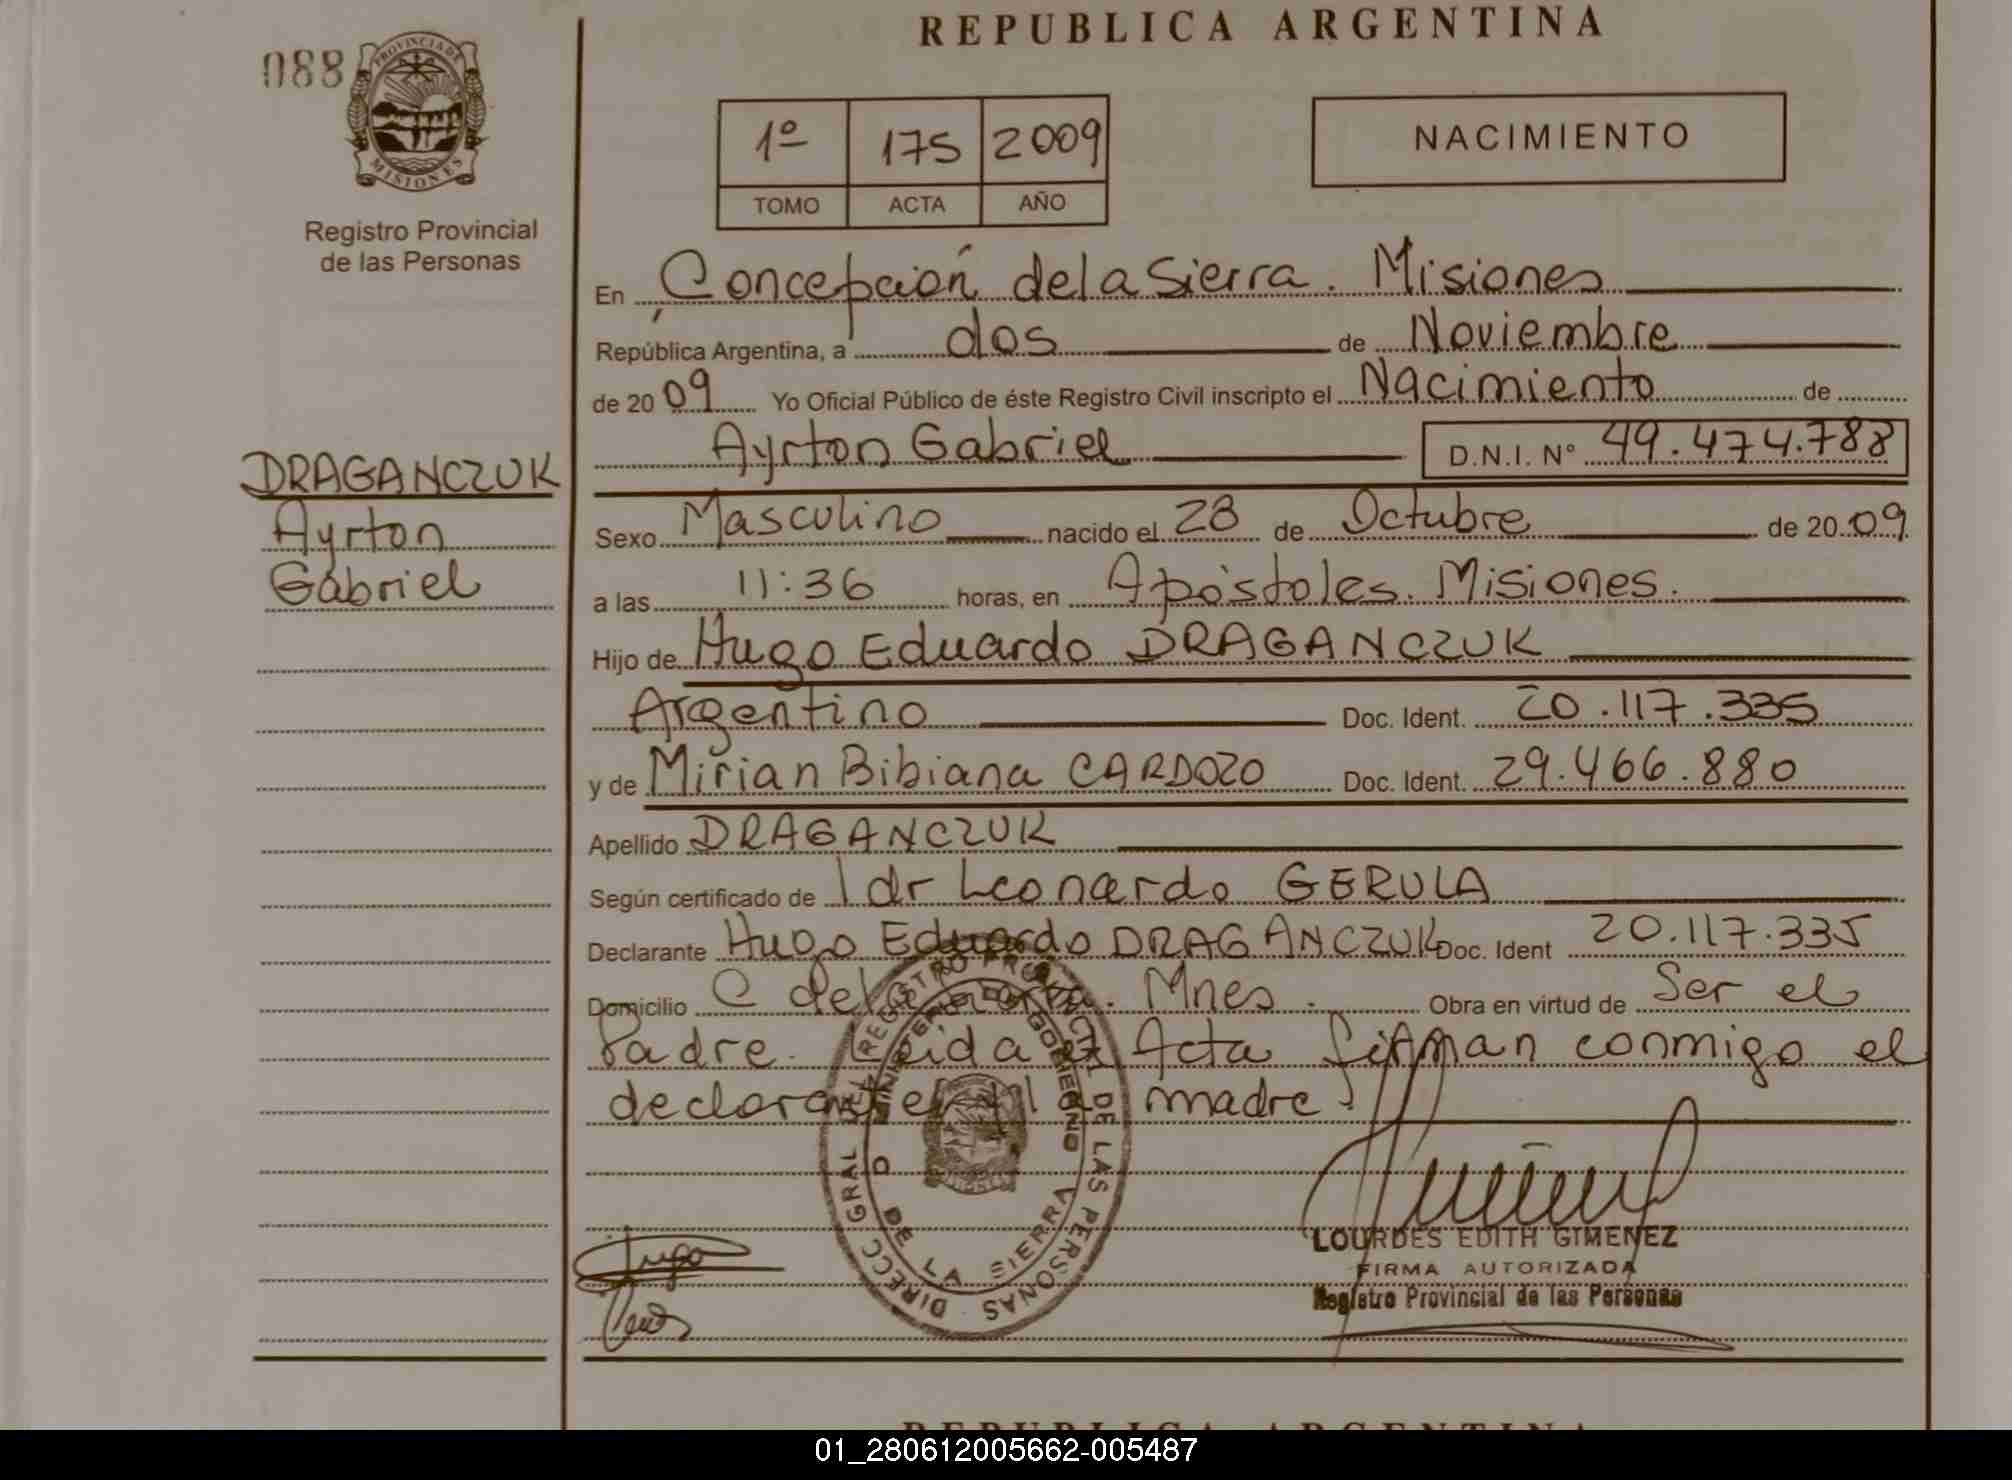 REPUBLICA ARGENTINA
088
PROVINCIA DE
MISIONES
Registro Provincial
de las Personas
1º 175 2009
TOMO ACTA AÑO
NACIMIENTO
En Concepción de la Sierra. Misiones
República Argentina, a dos de Noviembre
de 20 09 Yo Oficial Público de éste Registro Civil inscripto el Nacimiento de
Ayrton Gabriel D.N.I. Nº 49.474.788
DRAGANCZUK
Ayrton
Gabriel
Sexo Masculino nacido el 28 de Octubre de 20 09
a las 11:36 horas, en Apóstoles. Misiones.
Hijo de Hugo Eduardo DRAGANCZUK
Argentino Doc. Ident. 20.117.335
y de Mirian Bibiana CARDOZO Doc. Ident. 29.466.880
Apellido DRAGANCZUK
Según certificado de dr Leonardo GERULA
Declarante Hugo Eduardo DRAGANCZUK Doc. Ident 20.117.335
Domicilio C de la Sierra. Mnes. Obra en virtud de Ser el
Padre. Leida el Acta firman conmigo el
declarante y la madre.
DIRECC GRAL DEL REGISTRO PROVINCIAL DE LAS PERSONAS
MINISTERIO DE GOBIERNO
D DE LA SIERRA
Hugo
LOURDES EDITH GIMENEZ
FIRMA AUTORIZADA
Registro Provincial de las Personas
REPUBLICA ARGENTINA
01_280612005662-005487